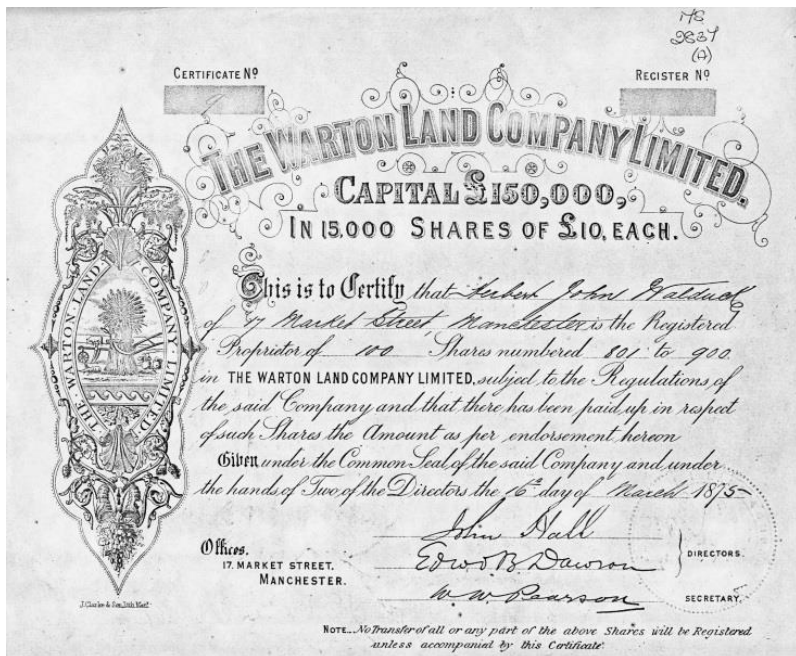 MS
2837
(A)
CERTIFICATE Nº
9
REGISTER Nº
THE WARTON LAND COMPANY LIMITED.
CAPITAL £150,000,
IN 15,000 SHARES OF £10, EACH.
This is to Certify that Herbert John Walduck
of 17 Market Street, Manchester is the Registered
Proprietor of 100 Shares numbered 801 to 900
in THE WARTON LAND COMPANY LIMITED, subject to the Regulations of
the said Company and that there has been paid up in respect
of such Shares the Amount as per endorsement hereon
Given under the Common Seal of the said Company and under
the hands of Two of the Directors the 16th day of March 1875
John Hall
Edwd B Dawson
DIRECTORS.
W. W. Pearson
SECRETARY.
Offices.
17. MARKET STREET,
MANCHESTER.
THE WARTON LAND COMPANY LIMITED
J. Clarke & Son, Lith Manr.
NOTE._No Transfer of all or any part of the above Shares will be Registered
unless accompanied by this Certificate.